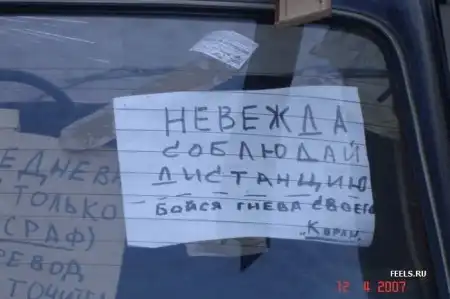 FEELS.RU
НЕВЕЖДА
СОБЛЮДАЙ
ДИСТАНЦИЮ
БОЙСЯ ГНЕВА СВОЕГО
ЕДНЕВ
ТОЛЬКО
(СРАФ)
РЕВОД
ТОЧИТЕ
12 4 2007